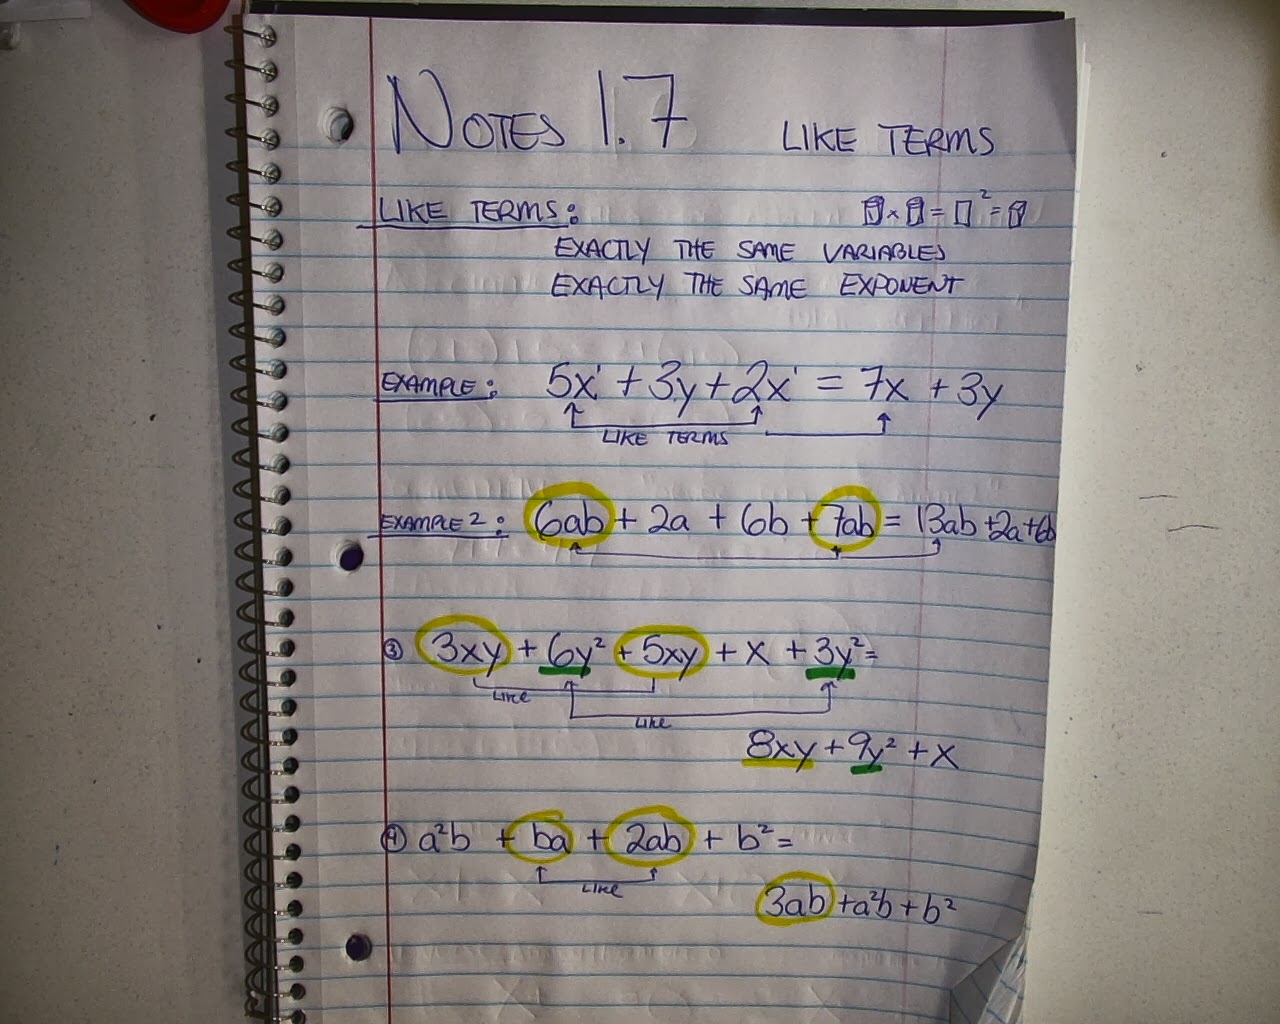 NOTES 1.7 LIKE TERMS
LIKE TERMS:
EXACTLY THE SAME VARIABLES
EXACTLY THE SAME EXPONENT
EXAMPLE: 5x¹ + 3y + 2x¹ = 7x + 3y
LIKE TERMS
EXAMPLE 2: 6ab + 2a + 6b + 7ab = 13ab + 2a + 6b
③ 3xy + 6y² + 5xy + x + 3y² =
LIKE
LIKE
8xy + 9y² + x
④ a²b + ba + 2ab + b² =
LIKE
3ab + a²b + b²